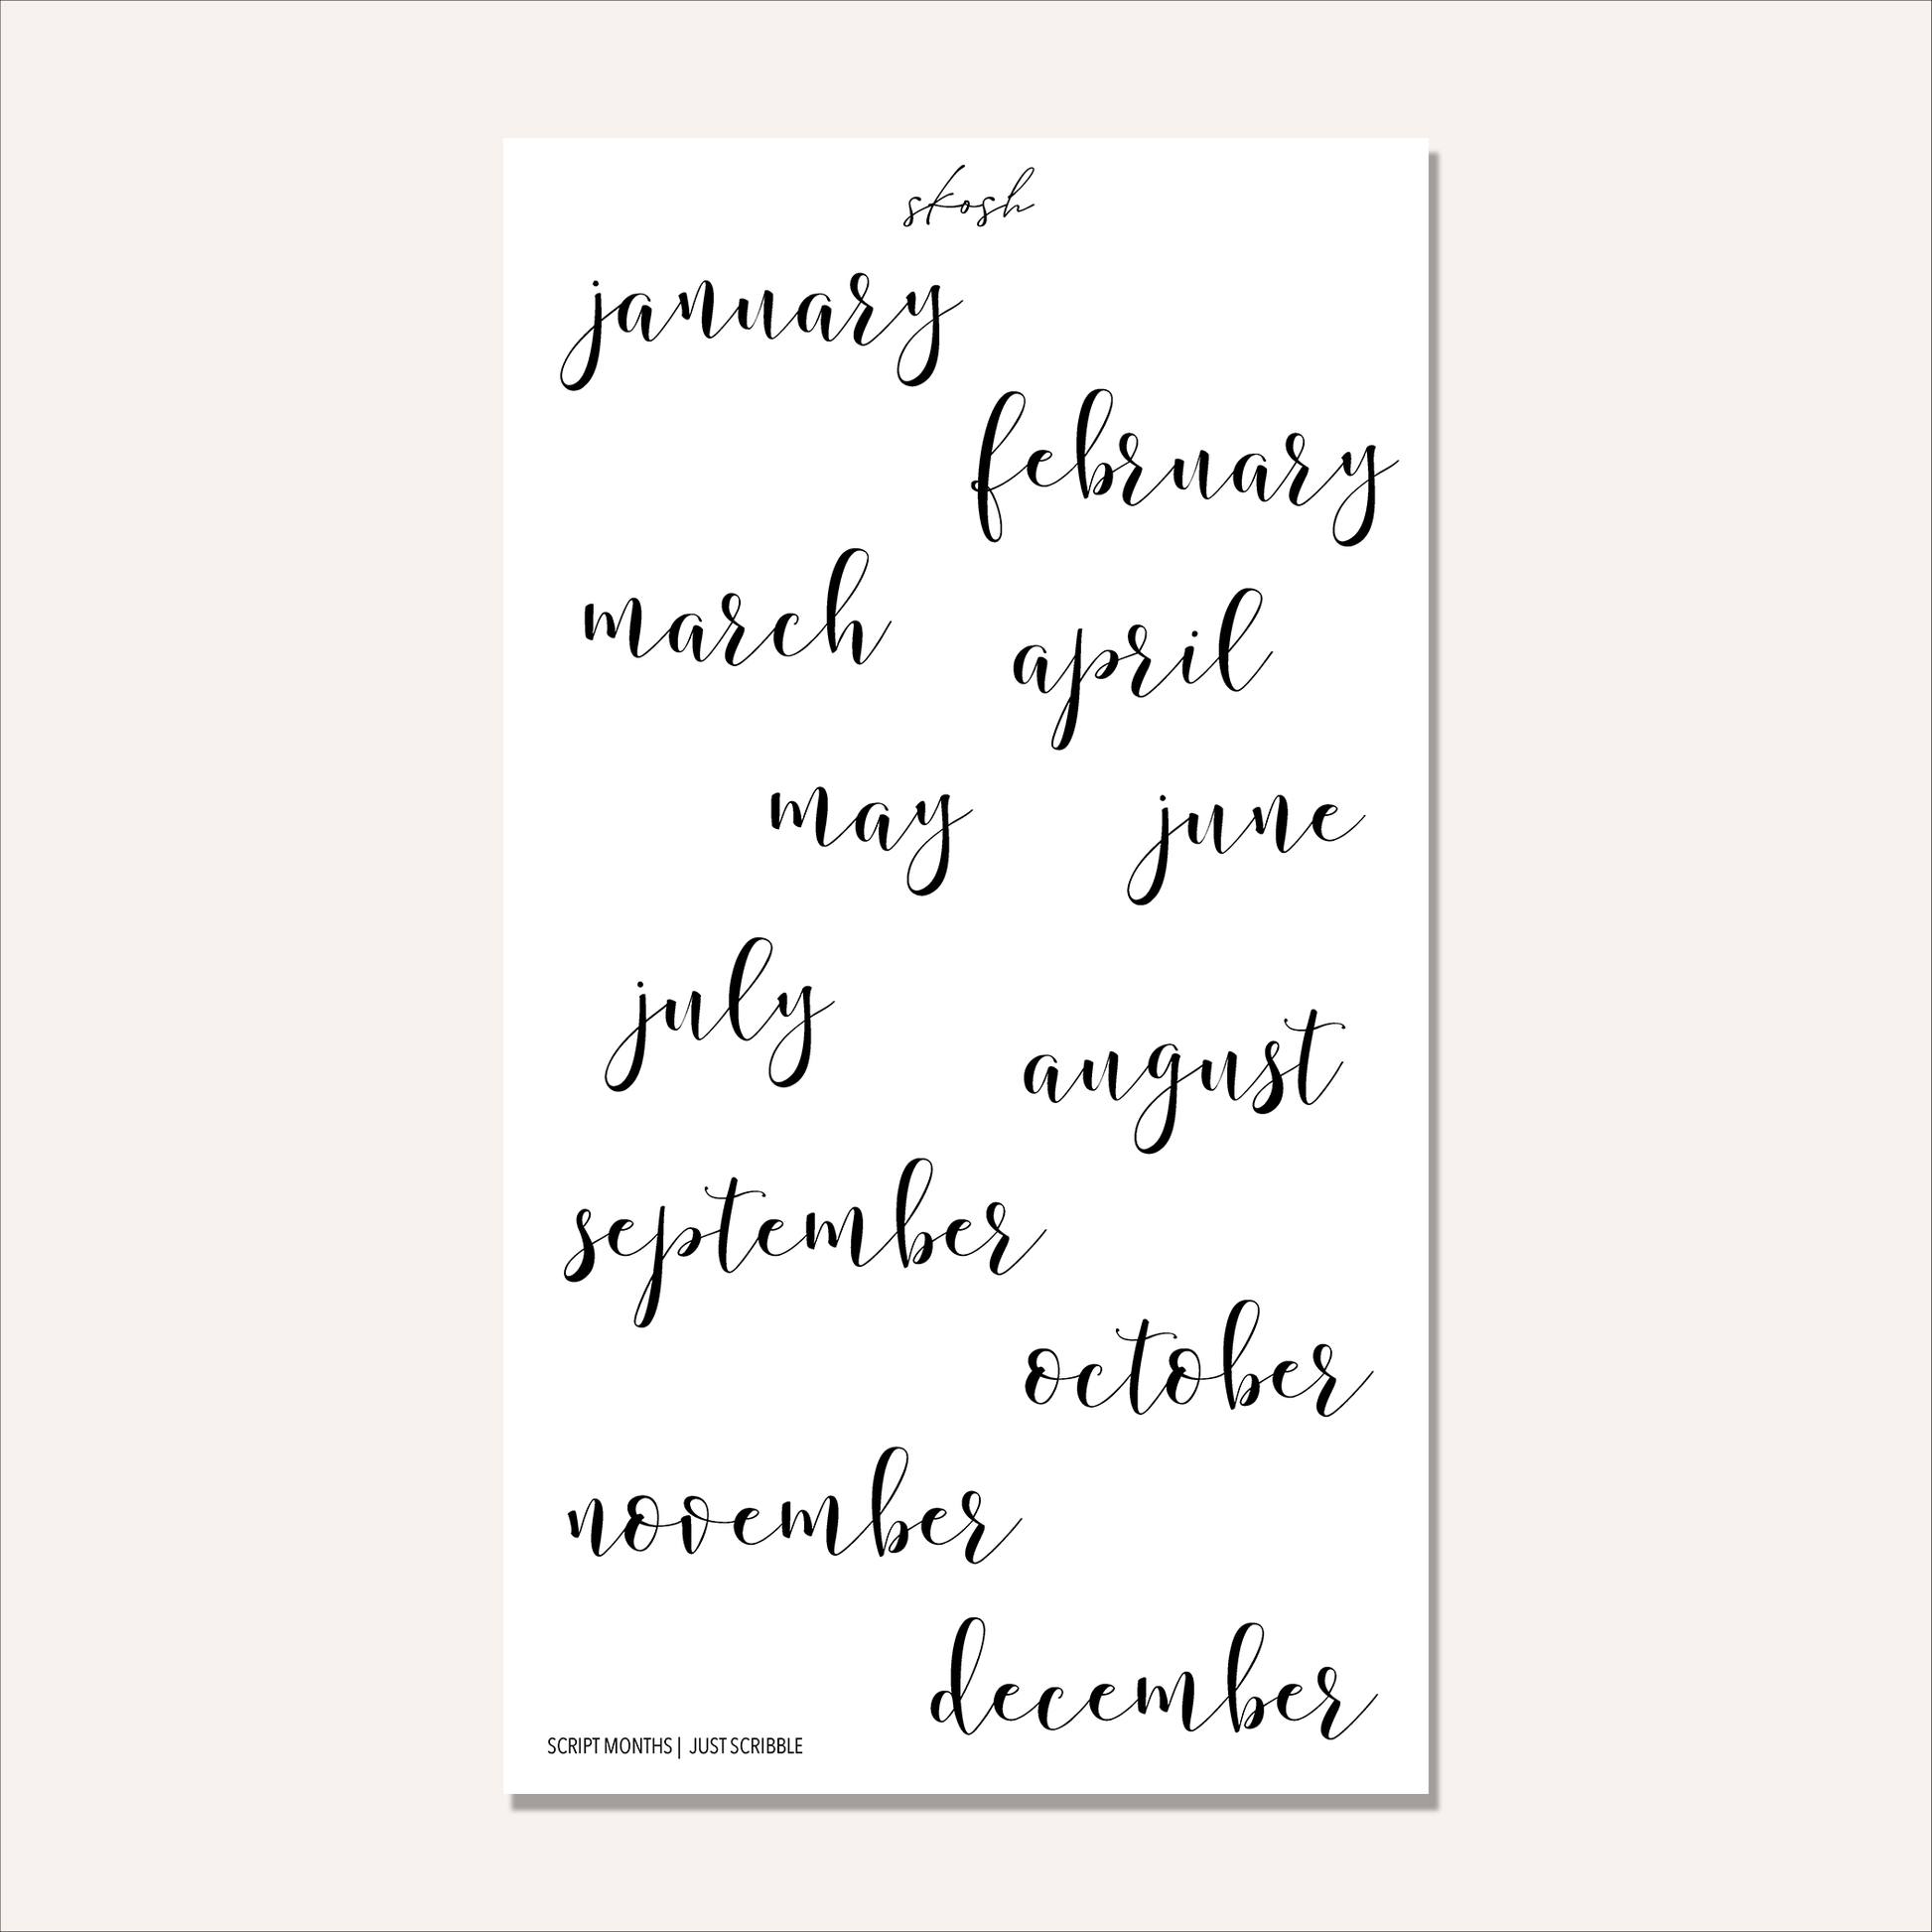 skosh
january
february
march
april
may
june
july
august
september
october
november
december
SCRIPT MONTHS | JUST SCRIBBLE